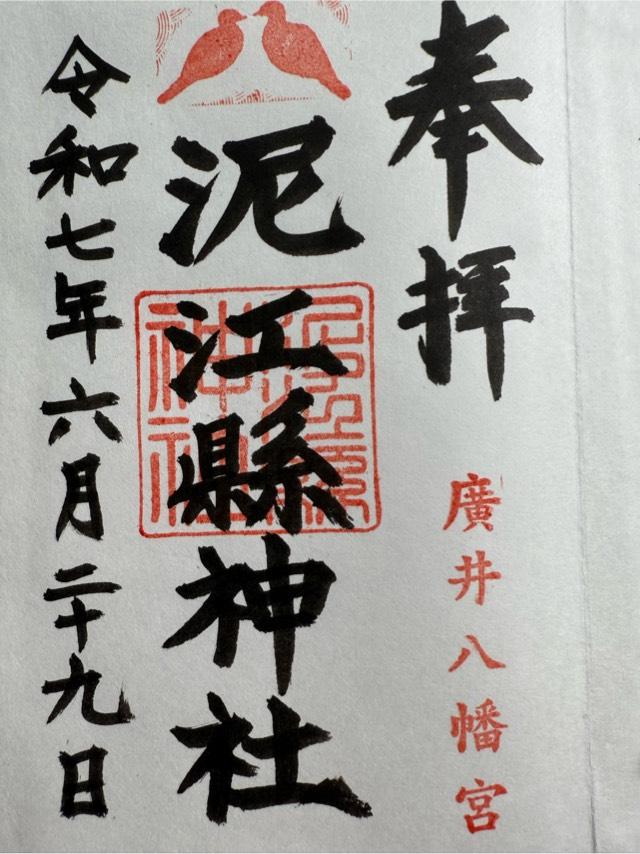 奉拝
廣井八幡宮
泥江縣神社
令和七年六月二十九日